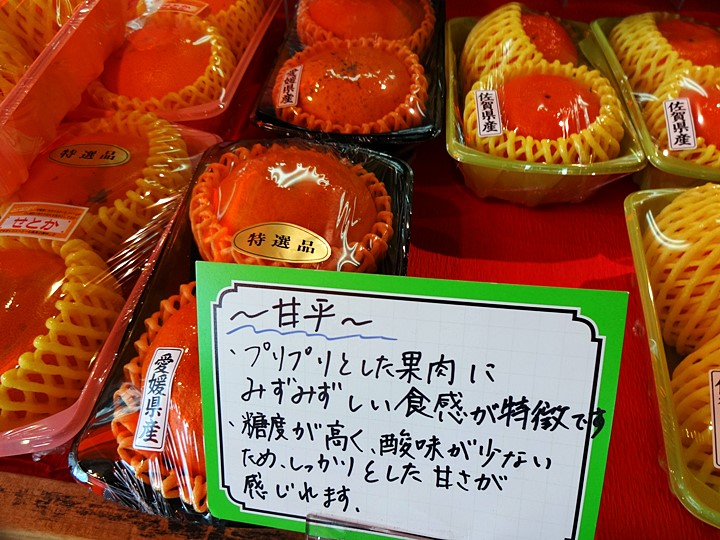 愛媛県産
佐賀県産
佐賀県産
特選品
せとか
特選品
愛媛県産
～甘平～
・プリプリとした果肉に
みずみずしい食感が特徴です
・糖度が高く、酸味が少ない
ため、しっかりとした甘さが
感じれます。